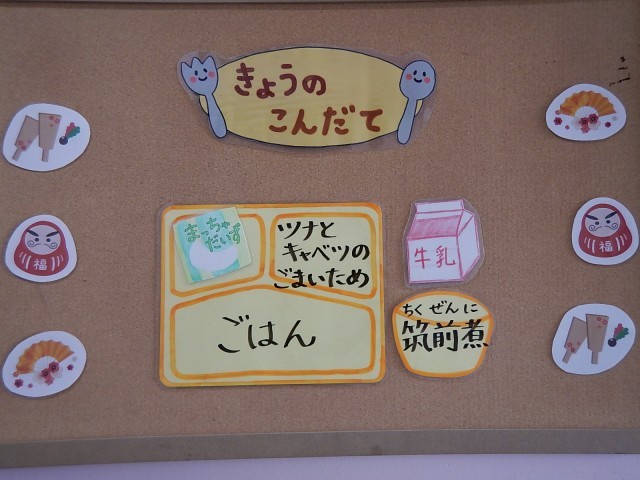 きょうの
こんだて
まっちゃ
だいず
ツナと
キャベツの
ごまいため
ごはん
牛乳
ちくぜんに
筑前煮
福
福